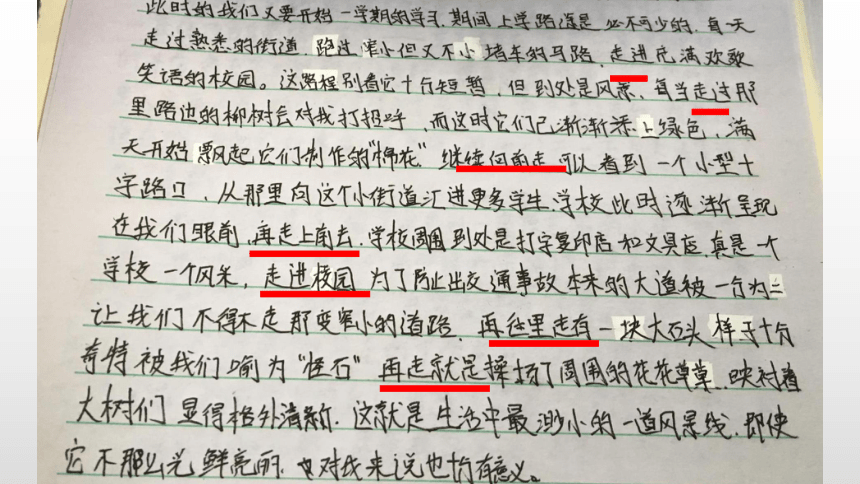 此时的我们又要开始一学期的学习.期间上学路漫是必不可少的.每一天
走过熟悉的街道.跑过窄小但又不小堵车的马路.走进充满欢歌
笑语的校园。这路程别看它十分短暂.但到处是风景.每当走过那
里路边的柳树会对我打招呼.而这时它们已渐渐添上绿色.满
天开始飘起它们制作的"棉花"继续向前走可以看到一个小型十
字路口.从那里向这个小街道汇进更多学生.学校此时逐渐呈现
在我们眼前.再走上前去.学校周围到处是打字复印店和文具店.真是一个
学校一个风采.走进校园为了防止出交通事故本来的大道被一分为二
让我们不得不走那变窄小的道路.再往里走有一块大石头样子十分
奇特被我们喻为"怪石"再走就是操场了周围的花花草草.映衬着
大树们显得格外清新.这就是生活中最渺小的一道风景线.即使
它不那么光鲜亮丽.对我来说也十分有意义。